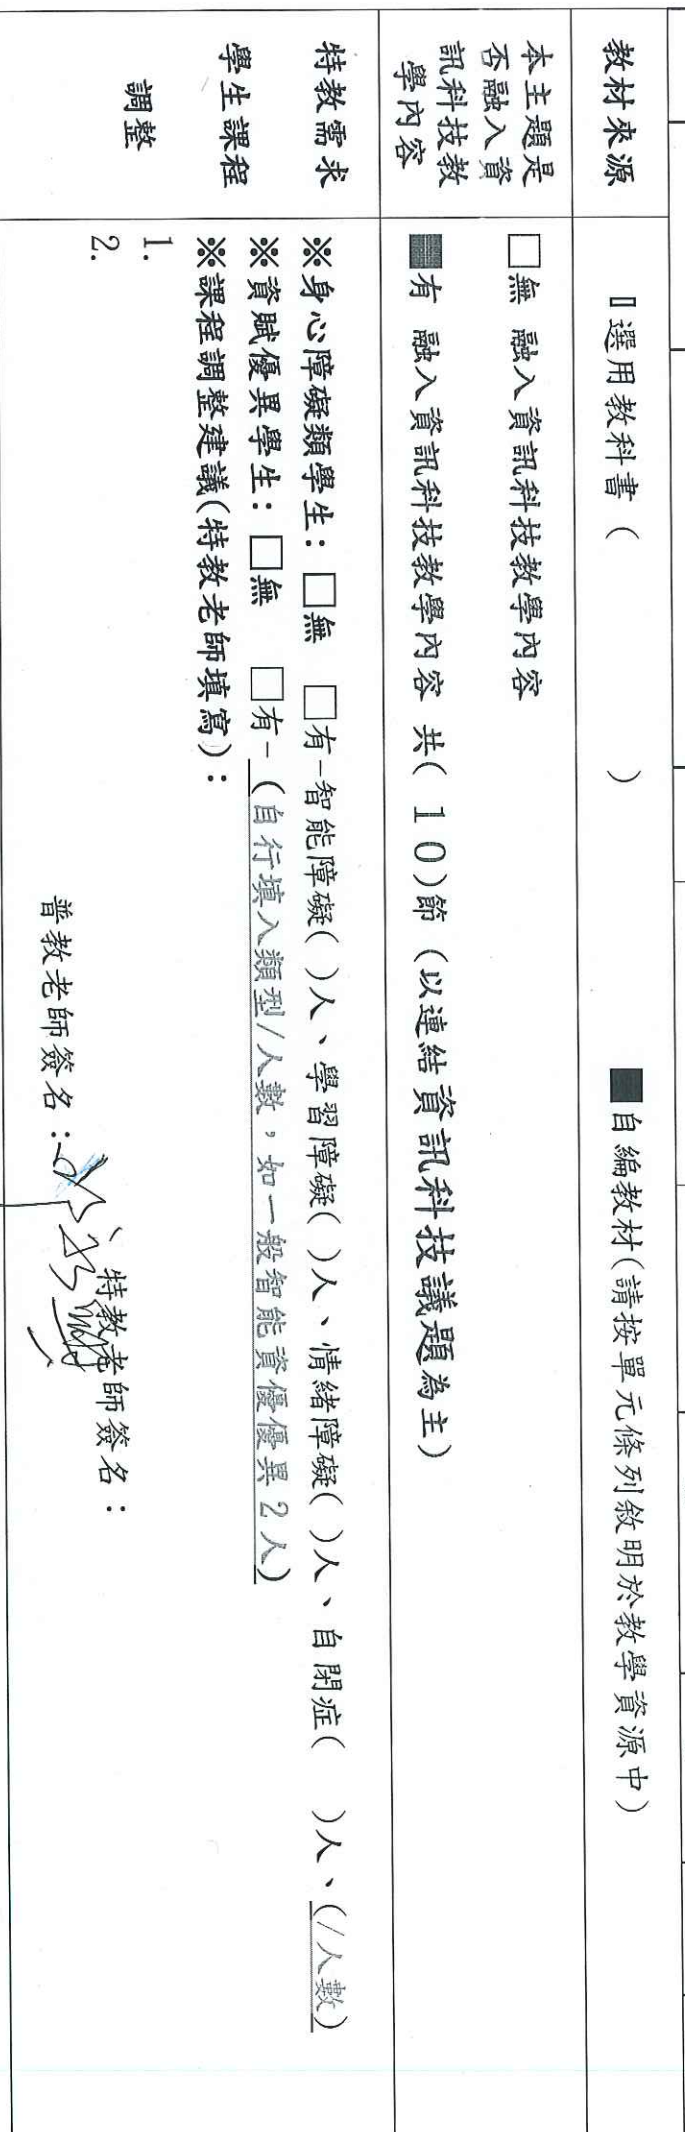 教材來源
選用教科書 (　　　　)
■自編教材(請按單元條列敘明於教學資源中)
本主題是
否融入資
訊科技教
學內容
□無 融入資訊科技教學內容
■有 融入資訊科技教學內容 共( 1 0 )節 (以連結資訊科技議題為主)
特教需求
學生課程
調整
※身心障礙類學生：□無 □有-智能障礙( )人、學習障礙( )人、情緒障礙( )人、自閉症( )人、(/人數)
※資賦優異學生：□無 □有-(自行填入類型/人數，如一般智能資優優異2人)
※課程調整建議(特教老師填寫)：
1.
2.
特教老師簽名：
普教老師簽名：